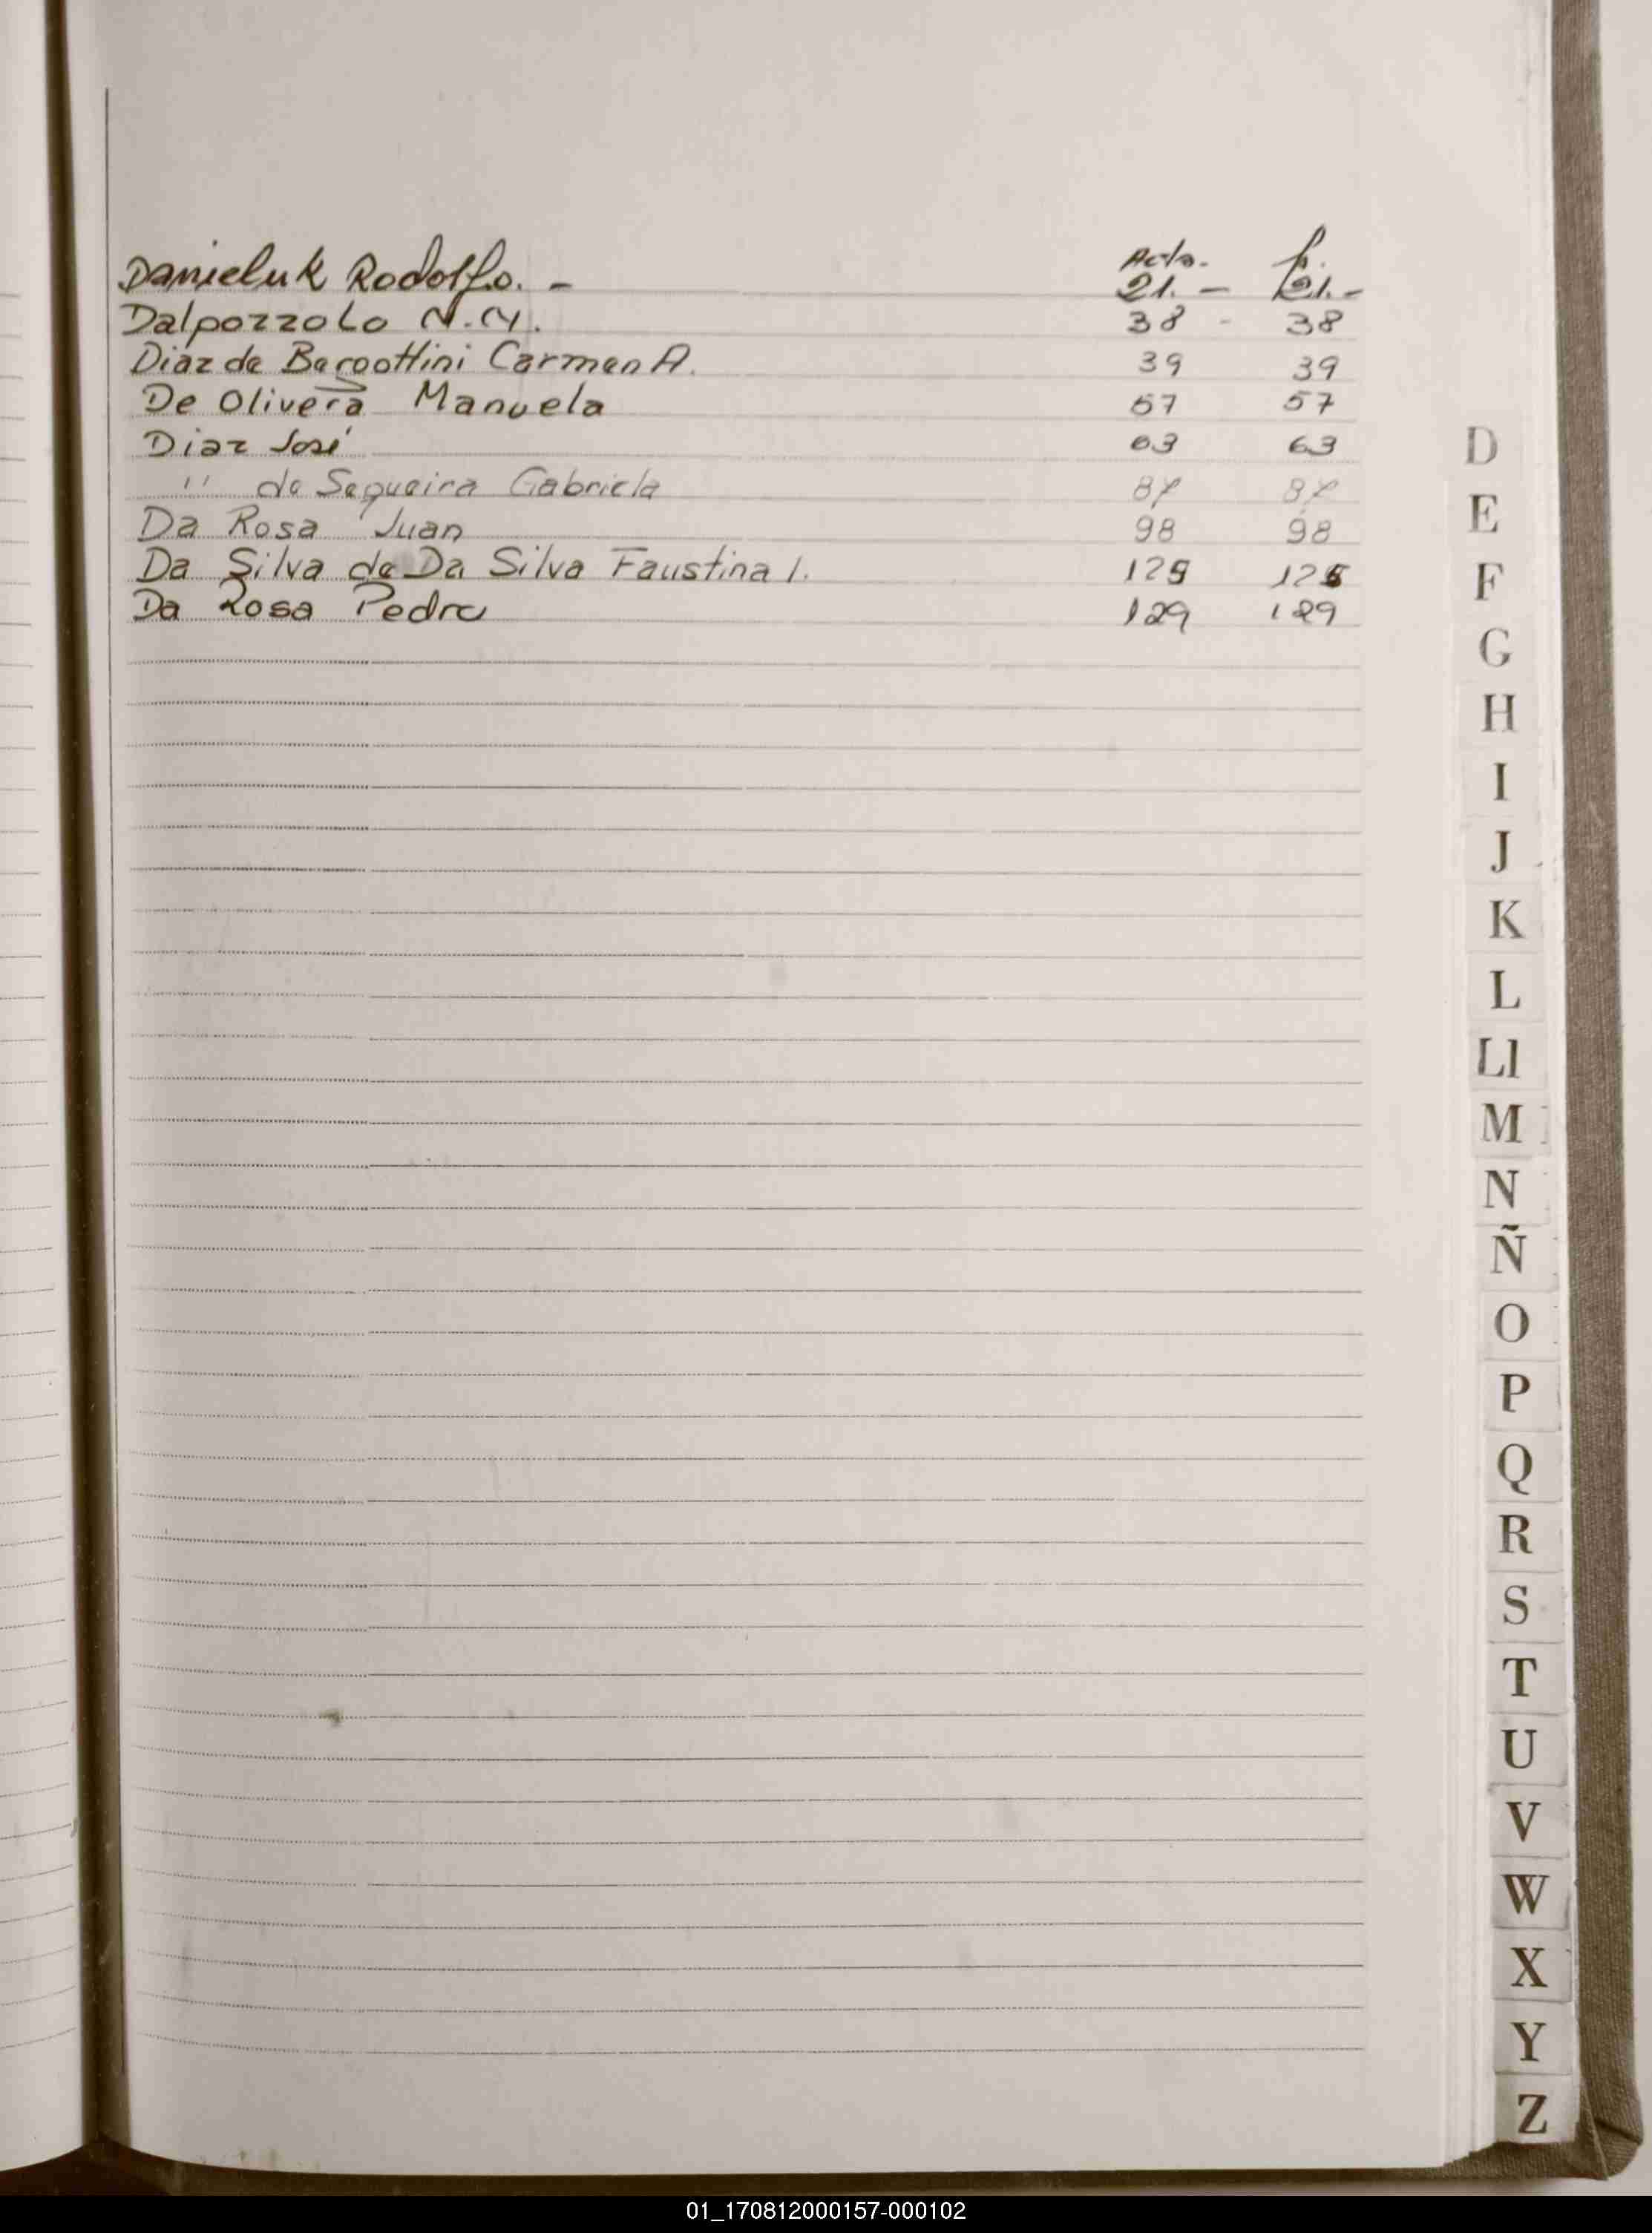 Acta. f.
Danieluk Rodolfo. - 21. - 21. -
Dalpozzolo N.N. 38 - 38
Diaz de Bergottini Carmen A. 39 39
De Olivera Manuela 57 57
Diaz José 63 63
" de Sequeira Gabriela 87 87
Da Rosa Juan 98 98
Da Silva de Da Silva Faustina I. 125 125
Da Rosa Pedro 129 129
D
E
F
G
H
I
J
K
L
Ll
M
N
Ñ
O
P
Q
R
S
T
U
V
W
X
Y
Z
01_170812000157-000102